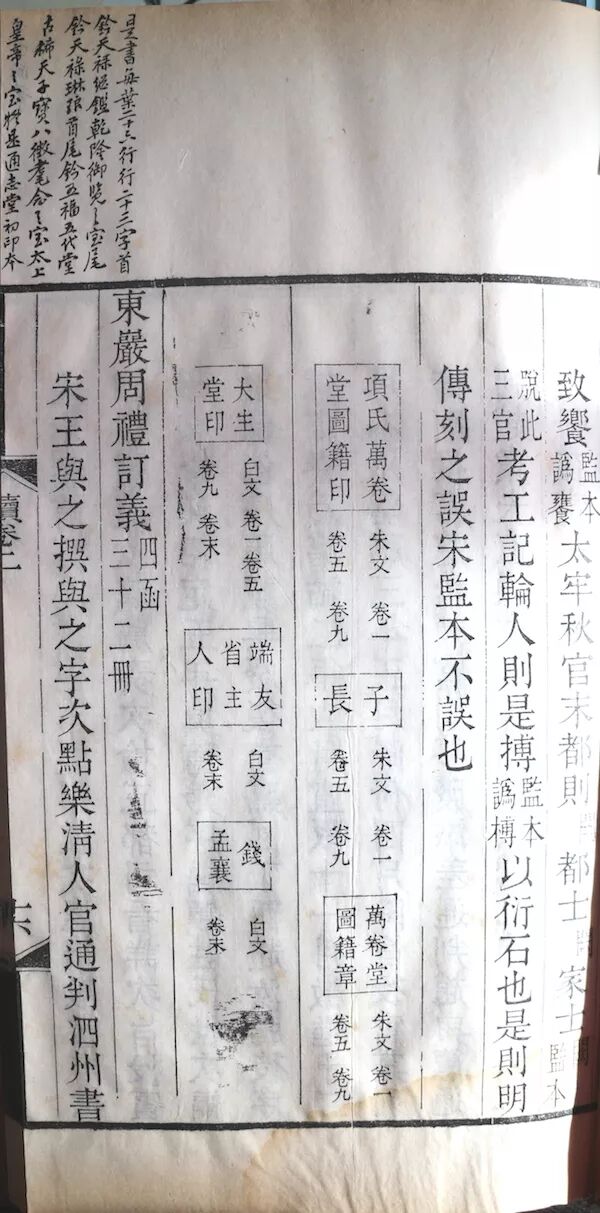 是書每葉二十六行行二十三字首
鈐天祿継鑑乾隆御覽之宝尾
鈐天祿琳琅首尾鈐五福五代堂
古稀天子寶八徵耄念之宝太上
皇帝之宝將是通志堂初印本
致饗監本譌饔太牢秋官末都則闕都士闕家士闕監本
脫此三官考工記輪人則是搏監本譌榑以衍石也是則明
傳刻之誤宋監本不誤也
項氏萬卷堂圖籍印 朱文 卷一 卷五 卷九 子長 朱文 卷一 卷五 卷九 萬卷堂圖籍章 朱文 卷一 卷五 卷九
大生堂印 白文 卷一 卷五 卷九 卷末 端友省主人印 白文 卷末 錢孟襄 白文 卷末
東巖周禮訂義四函三十二冊
宋王與之撰與之字次點樂清人官通判泗州書
續卷二